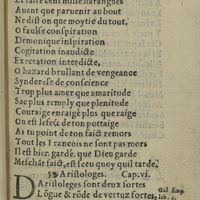 Et faire cent mille harangues
Auant que paruenir au bout
Ne dist on que moytié du tout.
O faulse conspiration
Demonique inspiration
Cogitation inaudicte
Execration interdicte,
O hazard brullant de vengeance
Synderese de conscience
Trop plus amer que amaritude
Sac plus remply que plenitude
Couraige enraigé plus que raige
Ou est le secz de ton pottaige
As tu point de ton faict remors
Tout les Francois ne sont pas mors
Il est bien gardé, que Dieu garde
Meschāt faict, est sceu quoy quil tarde.
Aristologes. Cap. vi.
ARistologes sont deux fortes
Lōgue & rōde de vertuz fortes,
Gal. simp.
lib. 6.